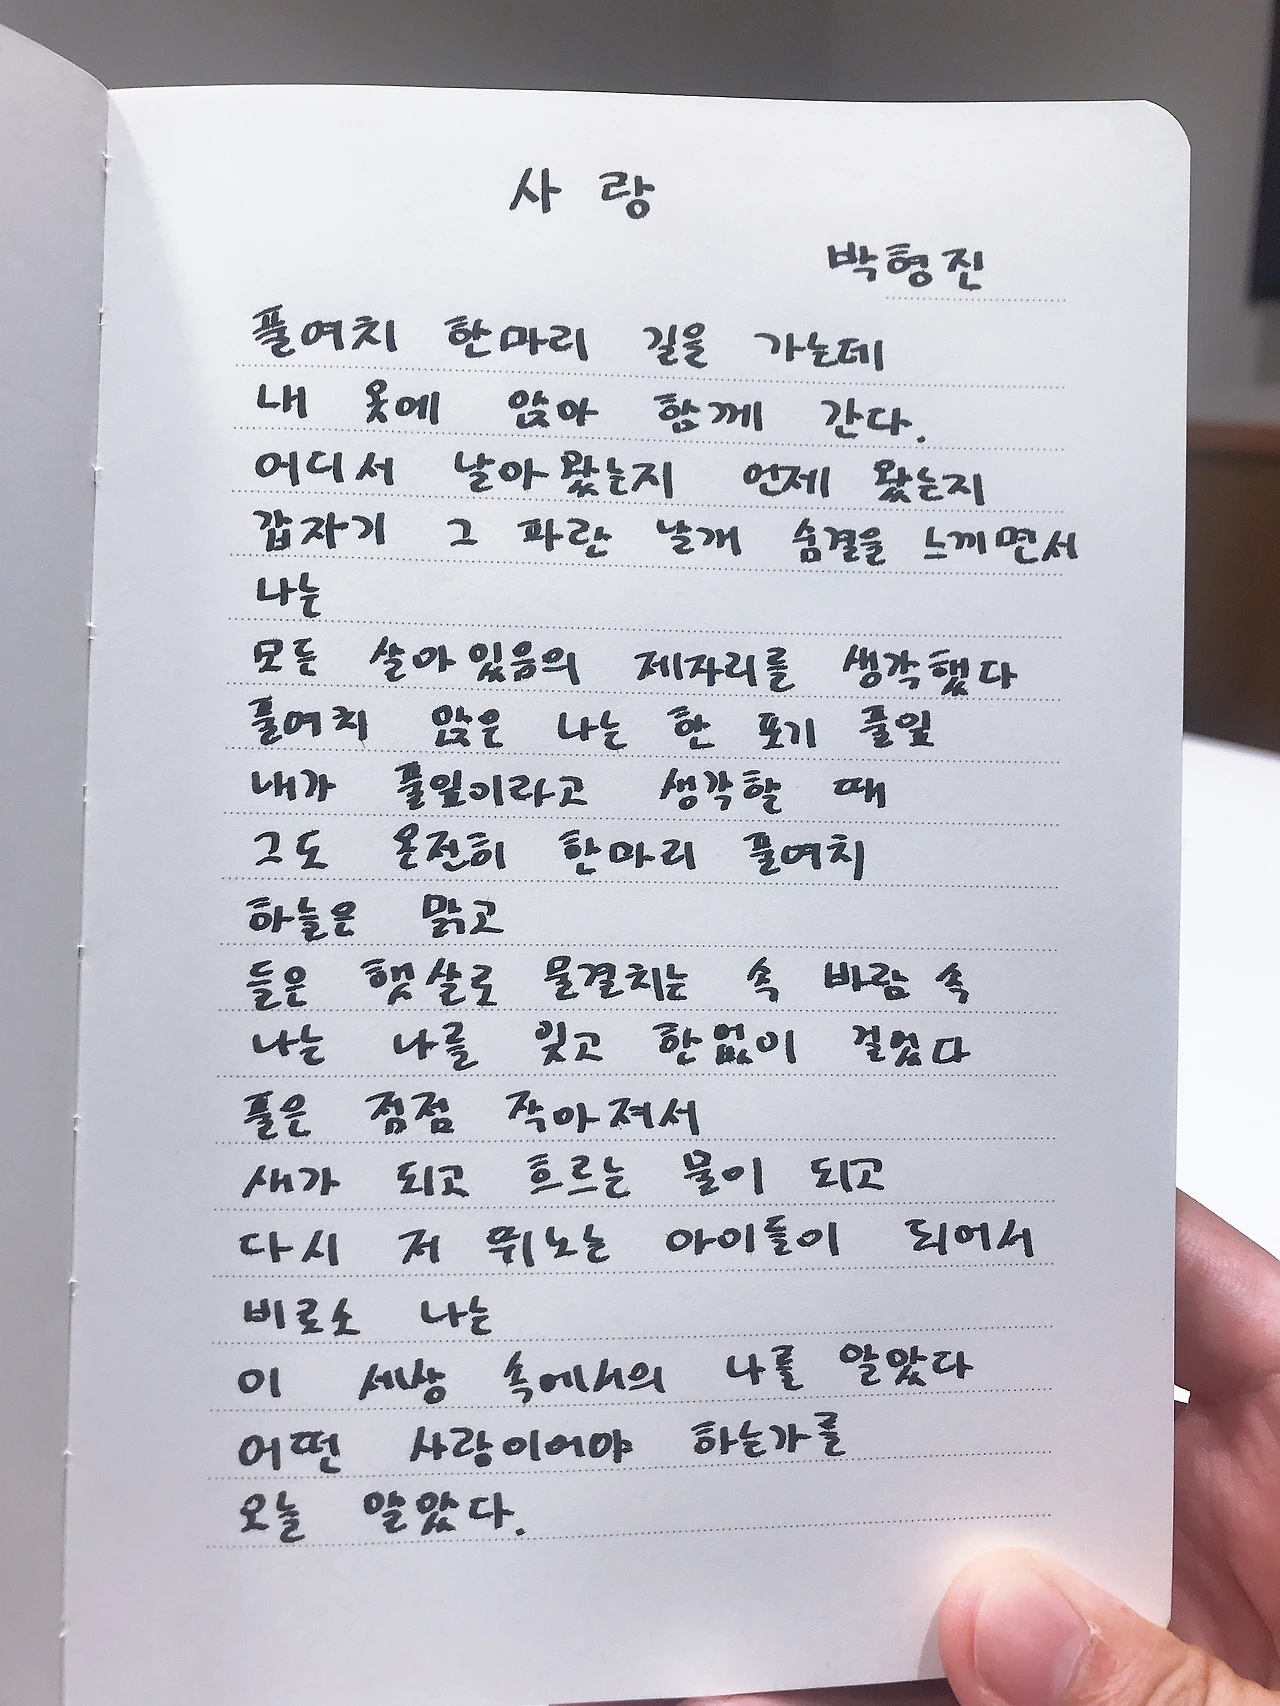 사 랑
박형진
풀여치 한마리 길을 가는데
내 옷에 앉아 함께 간다.
어디서 날아왔는지 언제 왔는지
갑자기 그 파란 날개 숨결을 느끼면서
나는
모든 살아있음의 제자리를 생각했다
풀여치 앉은 나는 한 포기 풀잎
내가 풀잎이라고 생각할 때
그도 온전히 한마리 풀여치
하늘은 맑고
들은 햇살로 물결치는 속 바람 속
나는 나를 잊고 한없이 걸었다
풀은 점점 작아져서
새가 되고 흐르는 물이 되고
다시 저 뛰노는 아이들이 되어서
비로소 나는
이 세상 속에서의 나를 알았다
어떤 사랑이어야 하는가를
오늘 알았다.